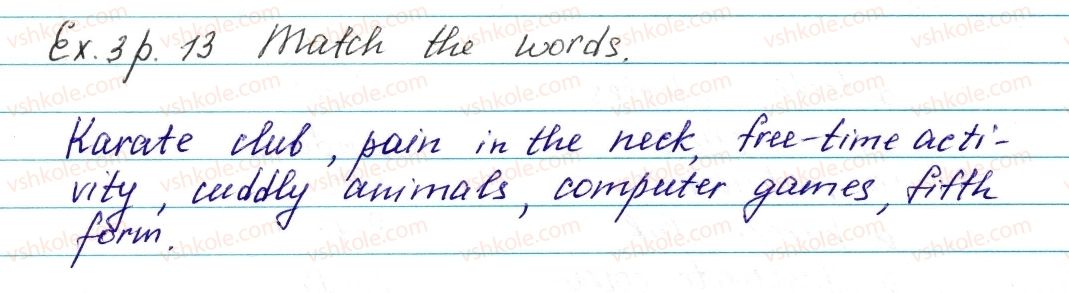 Ex. 3 p. 13 Match the words.
Karate club, pain in the neck, free-time acti-
vity, cuddly animals, computer games, fifth
form.